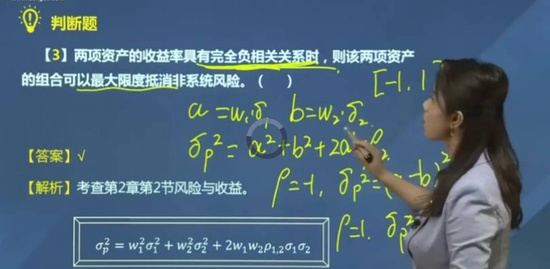 判断题
【3】两项资产的收益率具有完全负相关关系时，则该两项资产
的组合可以最大限度抵消非系统风险。（ ）
[-1, 1
a = w₁·δ₁ b = w₂·δ₂
δp² = a² + b² + 2a
【答案】√
ρ = -1, δp² = (a-b)²
【解析】考查第2章第2节风险与收益。
ρ = 1, δp²
σp² = w₁²σ₁² + w₂²σ₂² + 2w₁w₂ρ₁,₂σ₁σ₂